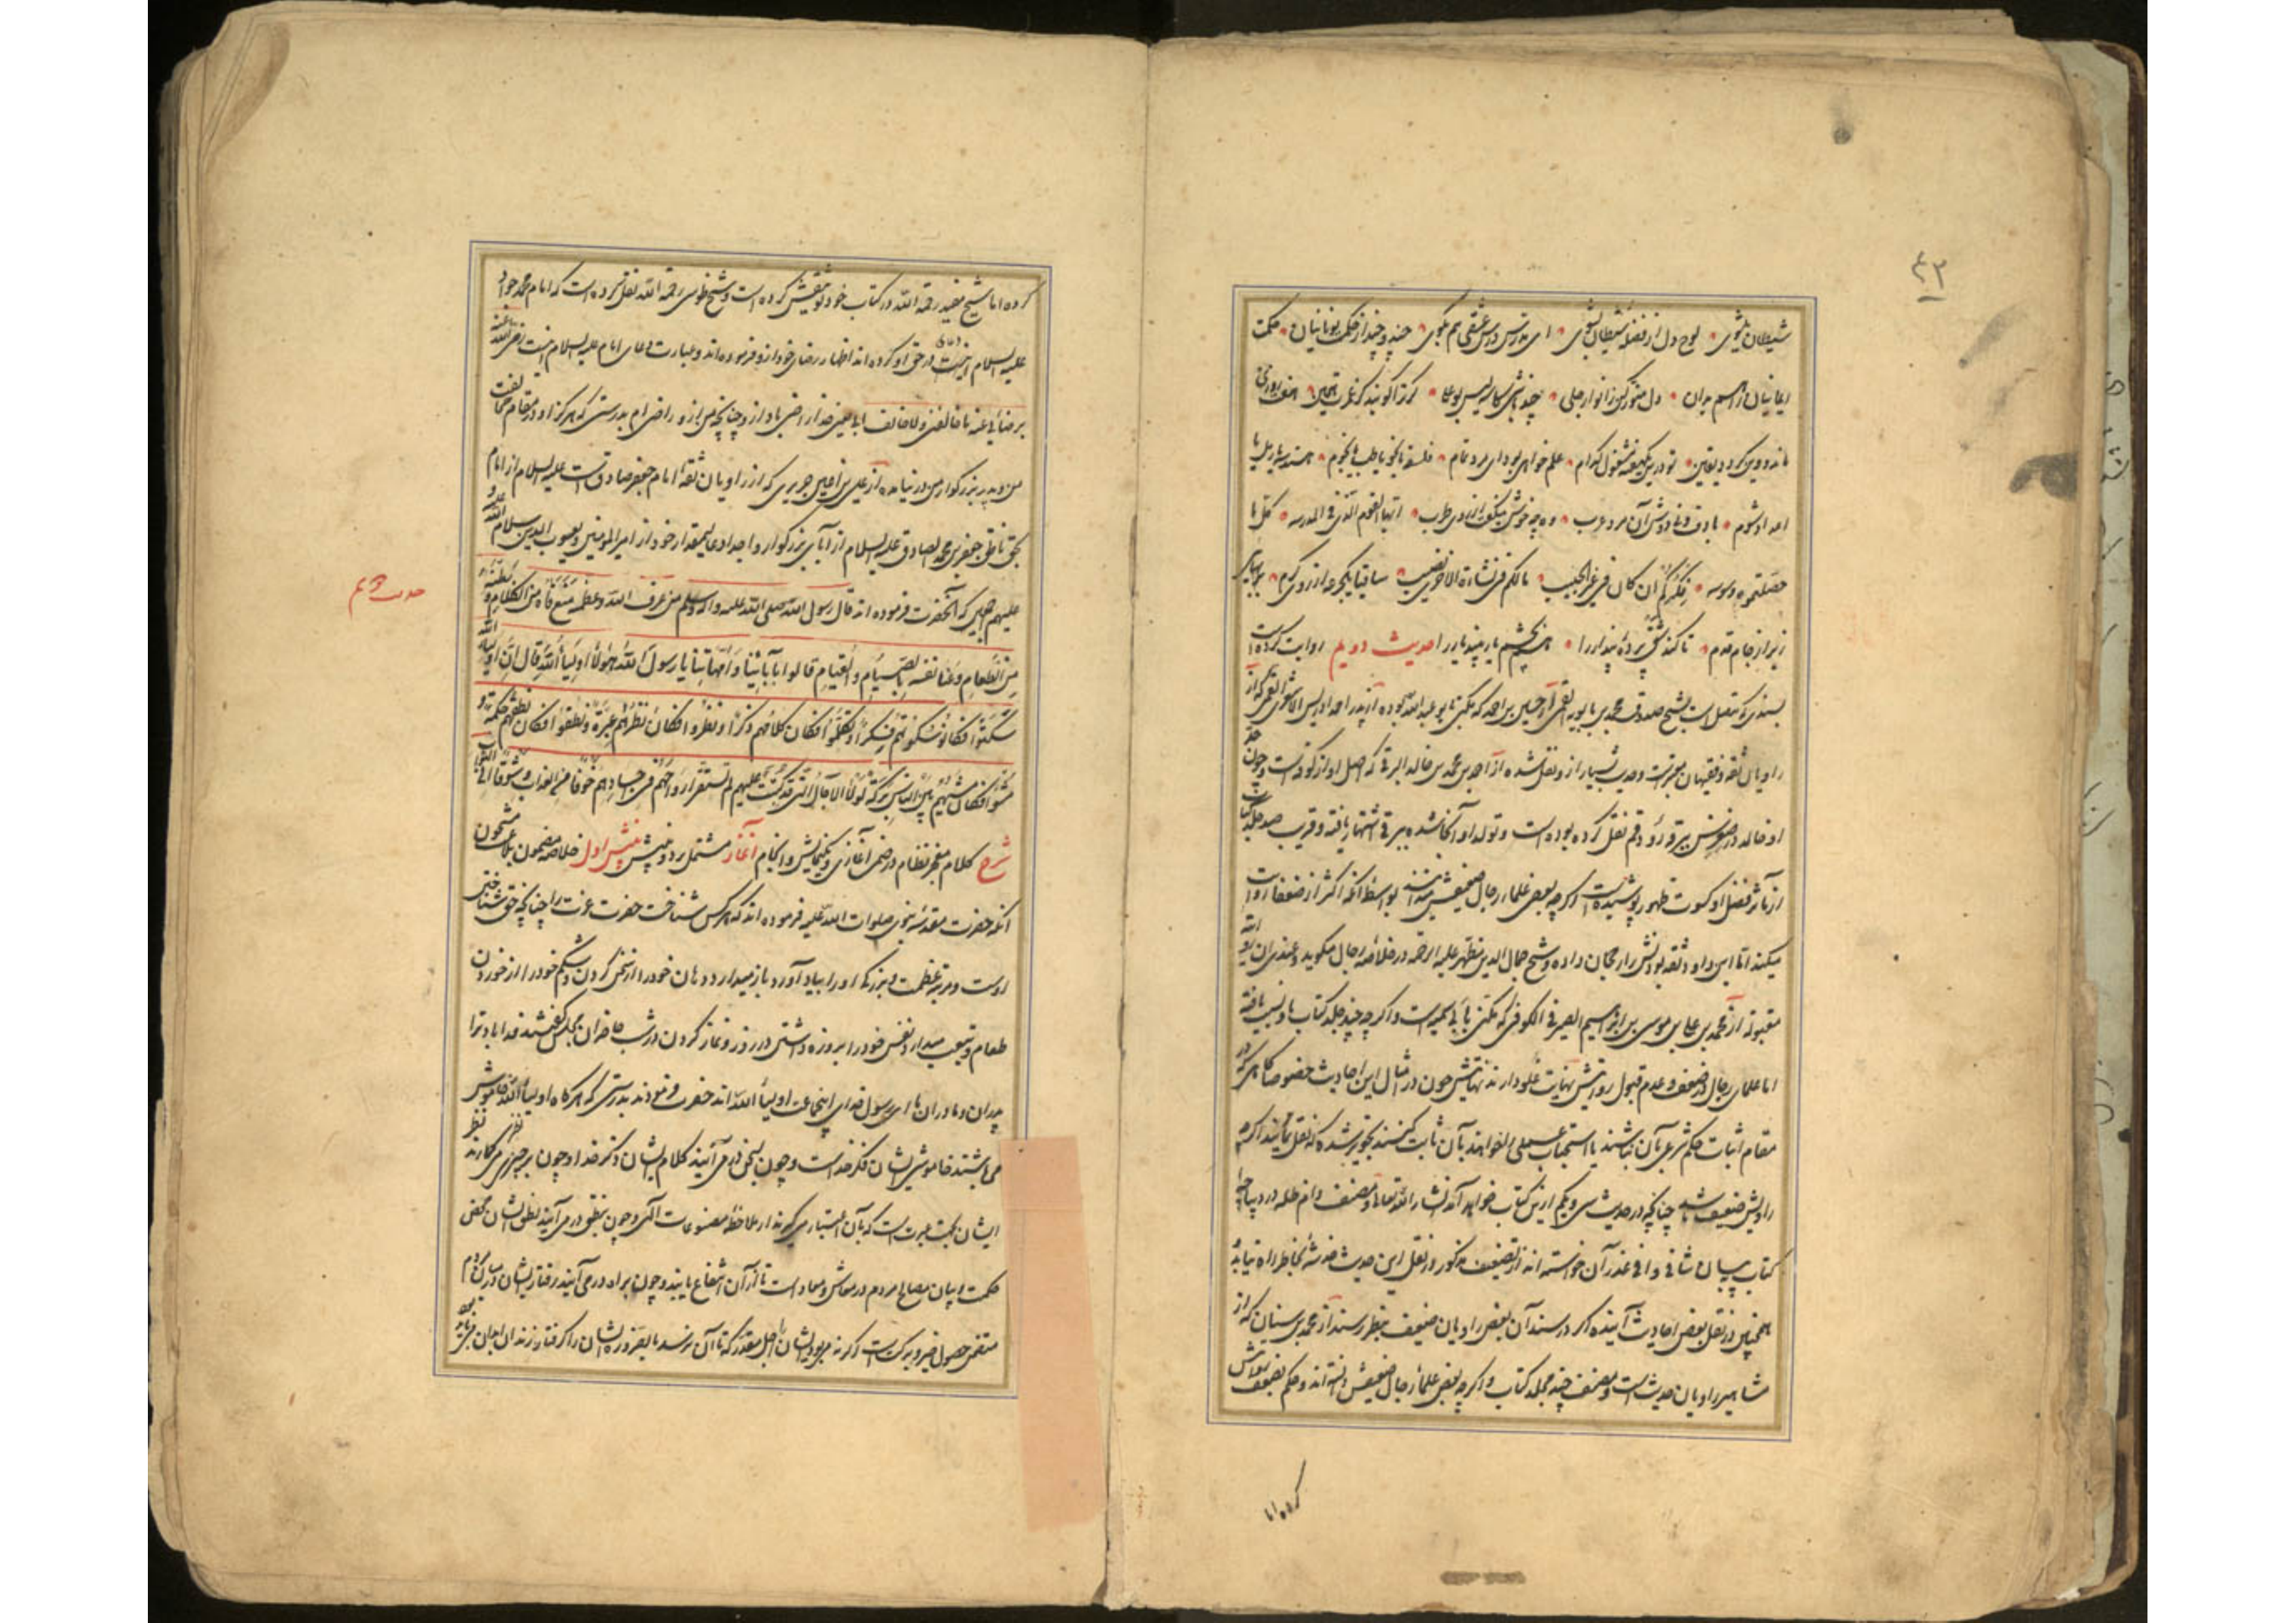 ۴۳
شیطان بشوی • لوح دل از فضلهٔ شیطان بشوی • ای مدرس درس عشقی هم بگوی • چند و چند از حکمت یونانیان • حکمت
ایمانیان را هم بدان • دل منور کن ز انوار جلی • چند باشی کاسه لیس بوعلی •
مانده وین کرد • تو درین یک هفته مشغول کدام • علم خواهی بود ای مرد تمام • فلسفه یا نحو یا طب یا نجوم • هندسه یا رمل یا
اعداد شوم • با دف و نی دوش آن مرد عرب • وه چه خوش میگفت از روی طرب • ایها القوم الذی فی المدرسه • کل ما
حصلتموه وسوسه • فکرکم ان کان فی غیر الحبیب • مالکم فی نشأة الاخری نصیب • ساقیا یکجرعه از روی کرم • بر بهایی
ریز از جام قدم • تا کند شق پردهٔ پندار را • هم بچشم یار بیند یار را حدیث دویم روایت کرده است
بسندی که متصل است بشیخ صدوق محمد بن بابویه القمی از حسین بن احمد که مکنی بابو عبدالله بوده از پدر احمد ادریس الاشعری القمی که از
راویان ثقه و فقیهان معتبر است و حدیث بسیار از و نقل شده از احمد بن محمد بن خالد البرقی که اصل او از کوفه است و چون جد
او خالد در صغر سن ببرقه رود قم نقل کرده بوده است و تولد او آنجا شده ببرقی اشتهار یافته و قریب صد جلد کتاب
از مآثر فضل او کسوت ظهور پوشیده است اگرچه بعض علماء رجال ضعیفش میدانند بواسطه آنکه اکثر از ضعفا روایت
میکند اما ابن داود ثقه بودنش را رجحان داده و شیخ جمال الدین مطهر علیه الرحمه در خلاصه رجال میگوید و عندی ان روایته
مقبولة از محمد بن علی بن موسی بن ابراهیم الصیرفی الکوفی که مکنی بابی سمینه است و اگرچه چند جلد کتاب باو نسبت یافته
اما علمای رجال در ضعف و عدم قبول روایتش نهایت غلو دارند نهایتش چون در امثال این احادیث خصوصا گاهی که در
مقام اثبات حکم شرعی بآن نباشند یا استحباب عملی را خواهند بآن ثابت کنند تجویز شده که نقل نمایند اگرچه
راویش ضعیف باشد چنانچه در حدیث سی و یکم ازین کتاب خواهد آمد انشاء الله تعالی و مصنف دام ظله در دیباچهٔ
کتاب ببیان شافی و وافی عذر آن خواسته اند از تضعیف مذکور در نقل این حدیث خدشهٔ بخاطر راه نیابد
همچنین در نقل بعض احادیث آینده که در سند آن بعض راویان ضعیف بنظر رسند از محمد بن سنان که از
مشاهیر راویان حدیث است و مصنف چند مجلد کتاب و اگرچه بعض علماء رجال ضعیفش دانسته اند و حکم بضعف روایتش
کرده اما
کرده اما شیخ مفید رحمه الله در کتاب خود توثیقش کرده است و شیخ طوسی رحمه الله نقل کرده است که امام محمد جواد
علیه السلام در حق او کرده اند اظهار رضای خود از و فرموده اند و عبارت دعای امام علیه السلام اینست رضی الله عنه
برضائی عنه فما خالفنی و لا خالف ابی یعنی خدا راضی باد از و چنانچه من از و راضی ام بدرستی که هرگز او در مقام مخالفت
من و پدر بزرگوار من در نیامده از علی بن جریری که از راویان ثقه امام جعفر صادق است علیه السلام از امام
بحق ناطق جعفر بن محمد الصادق علیه السلام از آبای بزرگوار و اجداد عالیمقدار خود از امیر المؤمنین و یعسوب الدین سلام الله علیه و
علیهم اجمعین که آنحضرت فرموده اند قال رسول الله صلی الله علیه و آله و سلم من عرف الله و عظمه منع فاه من الکلام و بطنه
من الطعام و عنا نفسه بالصیام و القیام قالوا بآبائنا و امهاتنا یا رسول الله هؤلاء اولیاء الله قال ان اولیاء الله
سکتوا فکان سکوتهم فکرا و تکلموا فکان کلامهم ذکرا و نظروا فکان نظرهم عبرة و نطقوا فکان نطقهم حکمة و
مشوا فکان مشیهم بین الناس برکة لولا الآجال التی قد کتبت علیهم لم تستقر ارواحهم فی اجسادهم خوفا من العذاب و شوقا الی الثواب
شرح کلام معجز نظام در ضمن آغازی و نمایش و انجام آغاز مشتمل بر دو بینش بینش اول خلاصه مضمون بلاغت مشحون
آنکه حضرت مقدسه نبوی صلوات الله علیه فرموده اند که هر کس شناخت حضرت عزت را چنانچه حق شناختن
اوست و مرتبه عظمت و بزرگی او را بیاد آورد باز میدارد دهان خود را از سخن کردن و شکم خود را از خوردن
طعام و بتعب میدارد نفس خود را بروزه داشتن در روز و نماز کردن در شب حاضران مجلس گفتند فدا باد ترا
پدران و مادران ما ای رسول خدای اینجماعت اولیاء الله اند حضرت فرمودند بدرستی که هر گاه اولیاء الله خاموش
می باشند خاموشی ایشان فکر خداست و چون بسخن در می آیند کلام ایشان ذکر خدا و چون بر چیزی نظر می گمارند نظر
ایشان بجهت عبرت است که بآن اعتبار میگیرند از ملاحظه مصنوعات الهی و چون بنطق در می آیند نطق ایشان محض
حکمت و بیان مصالح مردم در معاش و معاد است تا از آن انتفاع یابند و چون براه در می آیند رفتار ایشان در میان مردم
متضمن حصول خیر و برکت است اگر نه می بود ایشان را اجل مقدر که تا آن نرسد بالضروره ایشان را گرفتار زندان ابدان می باید بود
حدیث دوم